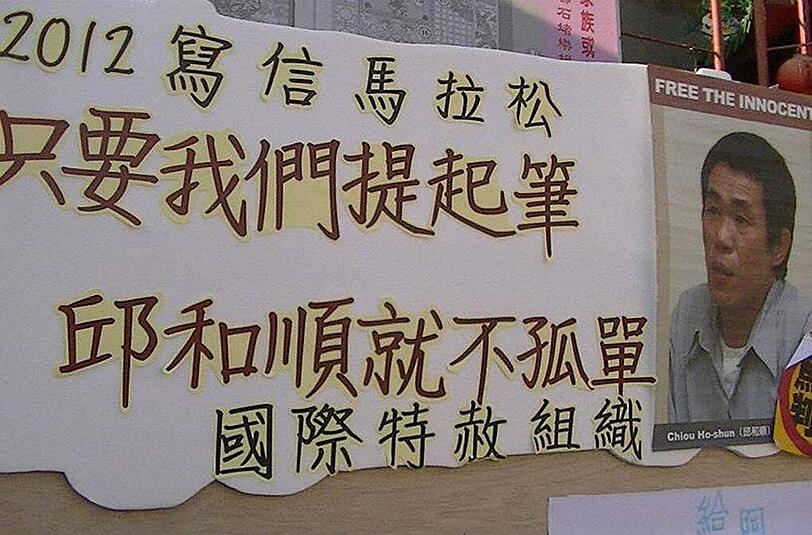 2012 寫信馬拉松
只要我們提起筆
邱和順就不孤單
國際特赦組織
FREE THE INNOCENT
Chiou Ho-shun (邱和順)
給阿